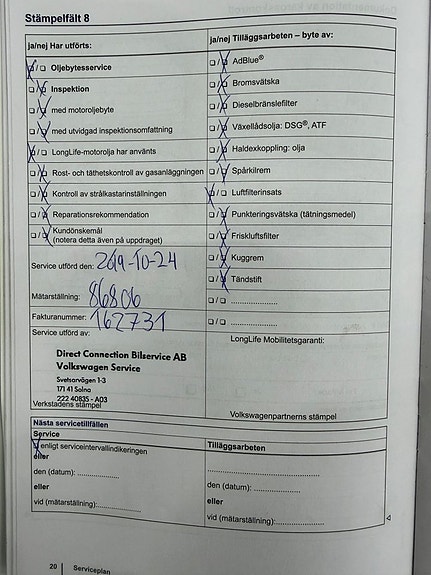 Stämpelfält 8
ja/nej Har utförts:
ja/nej Tilläggsarbeten – byte av:
Oljebytesservice
AdBlue®
Inspektion
Bromsvätska
med motoroljebyte
Dieselbränslefilter
med utvidgad inspektionsomfattning
Växellådsolja: DSG®, ATF
LongLife-motorolja har använts
Haldexkoppling: olja
Rost- och täthetskontroll av gasanläggningen
Spårkilrem
Kontroll av strålkastarinställningen
Luftfilterinsats
Reparationsrekommendation
Punkteringsvätska (tätningsmedel)
Kundönskemål
(notera detta även på uppdraget)
Friskluftsfilter
Service utförd den: 2019-10-24
Kuggrem
Tändstift
Mätarställning: 86806
.....................
Fakturanummer: 162731
.....................
Service utförd av:
LongLife Mobilitetsgaranti:
Direct Connection Bilservice AB
Volkswagen Service
Svetsarvägen 1-3
171 41 Solna
222 40835 - A03
Verkstadens stämpel
Volkswagenpartnerns stämpel
Nästa servicetillfällen
Service
Tilläggsarbeten
enligt serviceintervallindikeringen
eller
den (datum): ..................
den (datum): ..................
eller
eller
vid (mätarställning):..................
vid (mätarställning):..................
20 Serviceplan